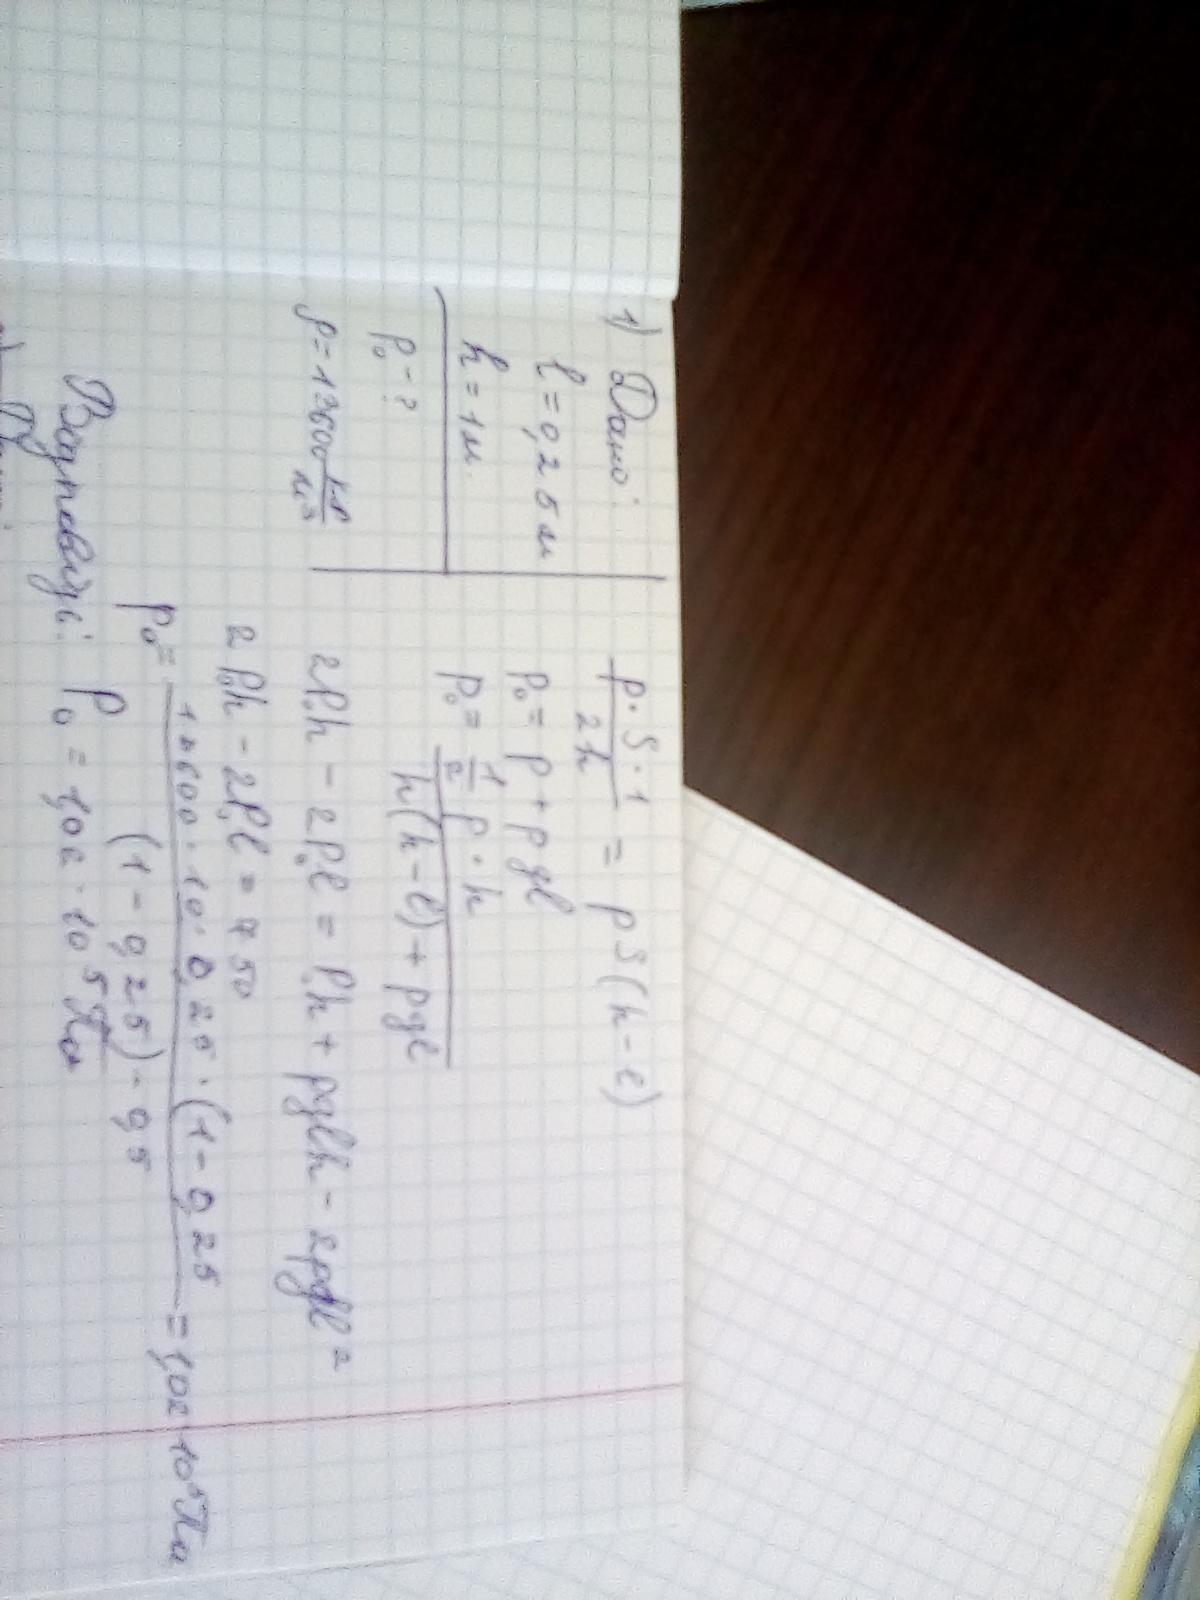 1) Дано:
l = 0,25 м
h = 1 м
P₀ - ?
ρ = 13600 кг/м³
p · S · 1 / 2h = p S (h - l)
P₀ = p + ρgl
P₀ = 1/2 p · h / h(h - l) + ρgl
2P₀h - 2P₀l = P₀h + ρglh - 2ρgl²
2P₀h - 2P₀l = 750
P₀ = 13600 · 10 · 0,25 · (1 - 0,25 / (1 - 0,25) - 0,5 = 1,02 · 10⁵ Па
Відповідь: P₀ = 1,02 · 10⁵ Па